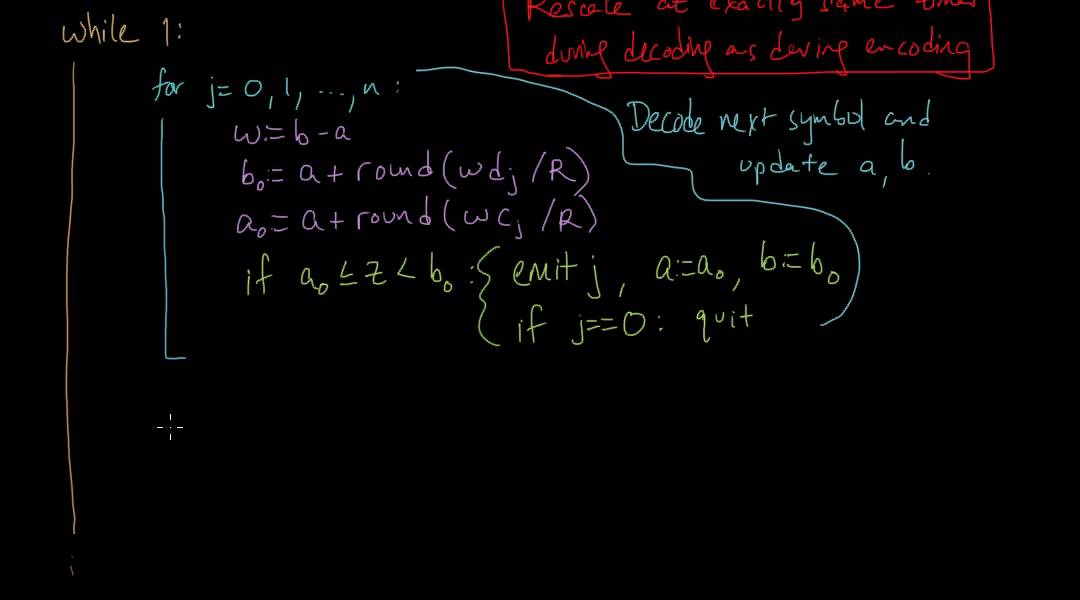 Rescale at exactly same times
during decoding as during encoding
while 1:
for j=0,1,...,n:
Decode next symbol and
update a, b.
w:=b-a
b₀:=a+round(wdⱼ/R)
a₀:=a+round(wcⱼ/R)
if a₀≤z<b₀:{emit j, a:=a₀, b:=b₀
if j==0: quit